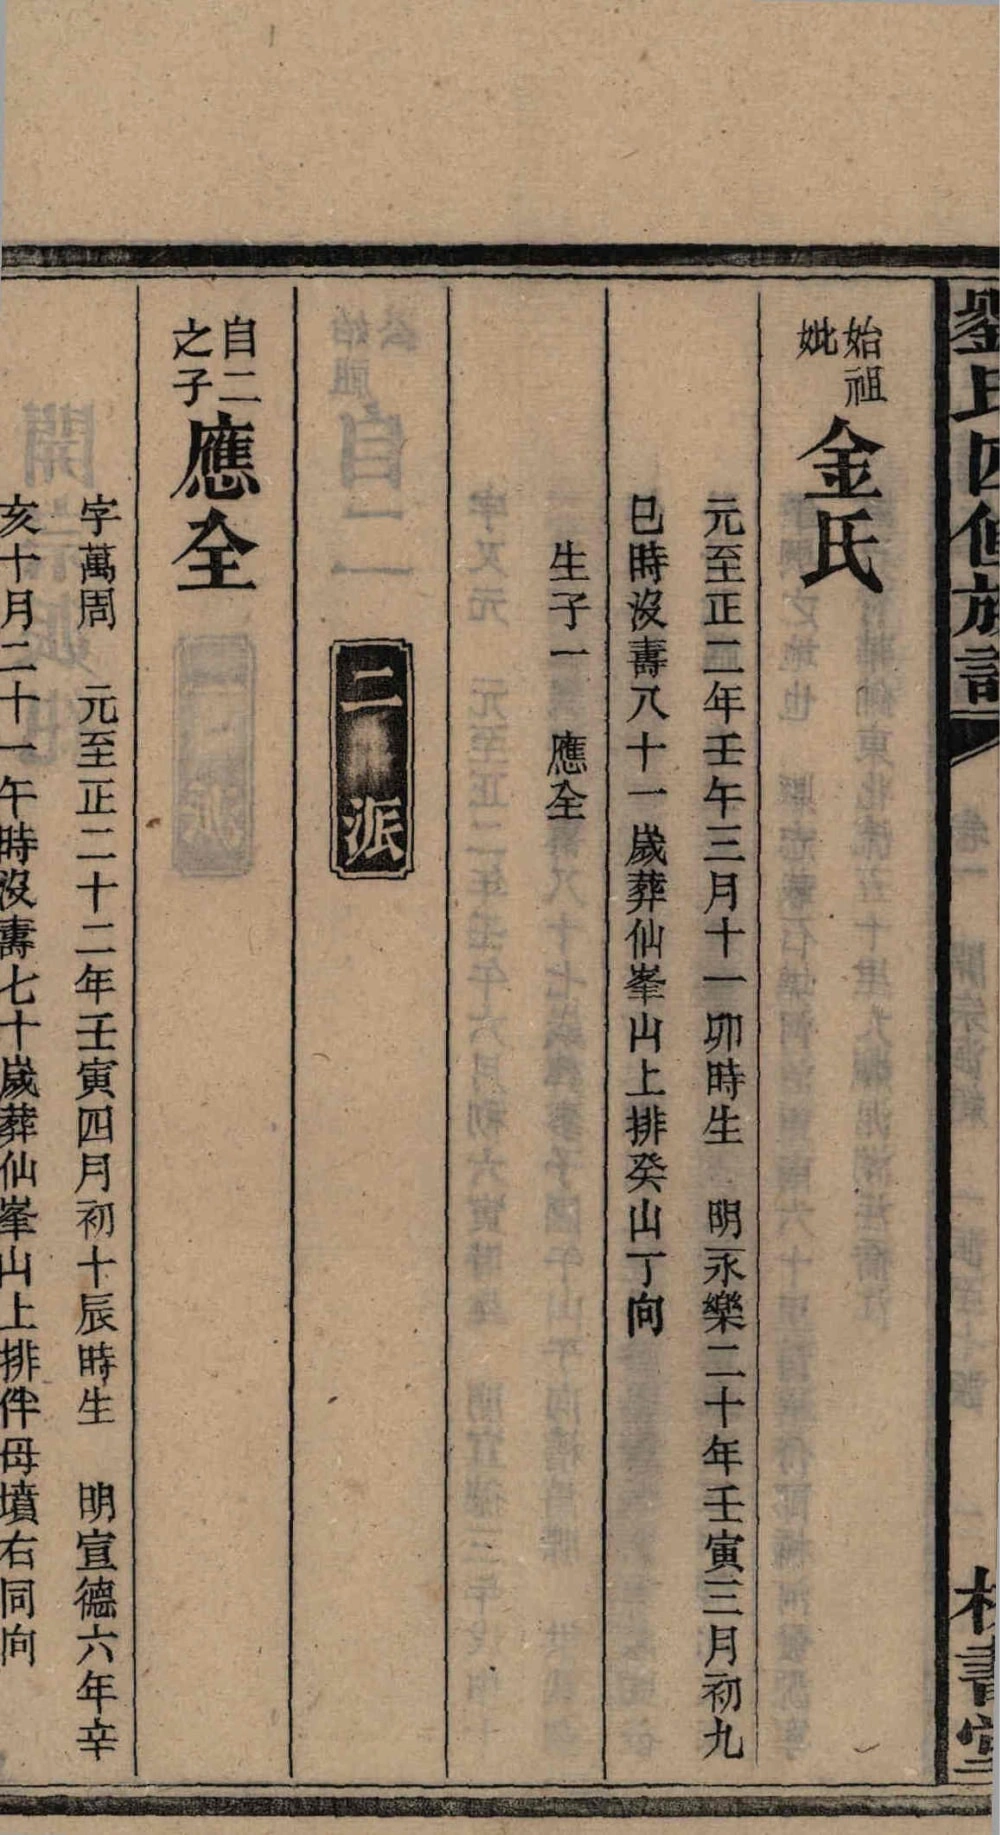 劉氏四修族譜
書堂
始祖
妣
金氏
元至正二年壬午三月十一卯時生 明永樂二十年壬寅三月初九
巳時沒壽八十一歲葬仙峯山上排癸山丁向
生子一 應全
二派
自二
之子
應全
字萬周 元至正二十二年壬寅四月初十辰時生 明宣德六年辛
亥十月二十一午時沒壽七十歲葬仙峯山上排伴母墳右同向